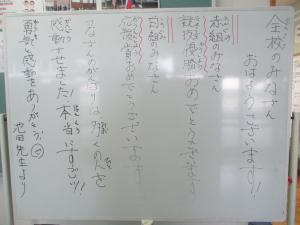 全校のみなさん
おはようございます!!
赤組のみなさん
競技優勝おめでとうございます
白組のみなさん
応援賞おめでとうございます
みなさんのがんばりは多くの人を
感動させました!本当にすごい!!
勇気と感動をありがとう!
池田先生より